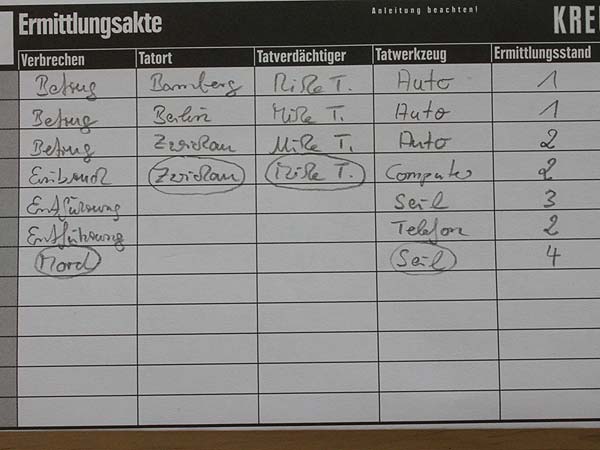 Anleitung beachten!
Ermittlungsakte KRE
Verbrechen Tatort Tatverdächtiger Tatwerkzeug Ermittlungsstand
Betrug Bamberg Mike T. Auto 1
Betrug Berlin Mike T. Auto 1
Betrug Zwickau Mike T. Auto 2
Einbruch Zwickau Mike T. Computer 2
Entführung Seil 3
Entführung Telefon 2
Mord Seil 4